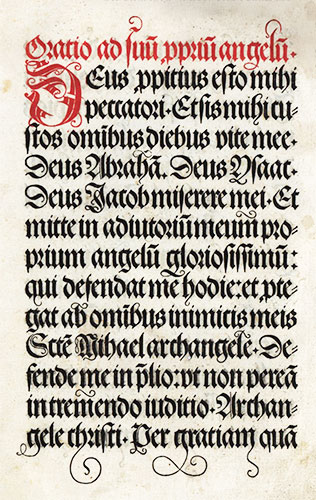 Oratio ad suū ꝓpriū angelū.
Deus ꝓpitius esto mihi
peccatori. Et sis mihi cu-
stos omībus diebus vite mee.
Deus Abrahā. Deus Ysaac.
Deus Jacob miserere mei. Et
mitte in adiutoriū meum pro-
prium angelū gloriosissimū:
qui defendat me hodie: et ꝓte-
gat ab omībus inimicis meis
Sctē Mihael archangele. De-
fende me in p̄lio: vt non pereā
in tremendo iuditio. Archan-
gele christi. Per gratiam quā